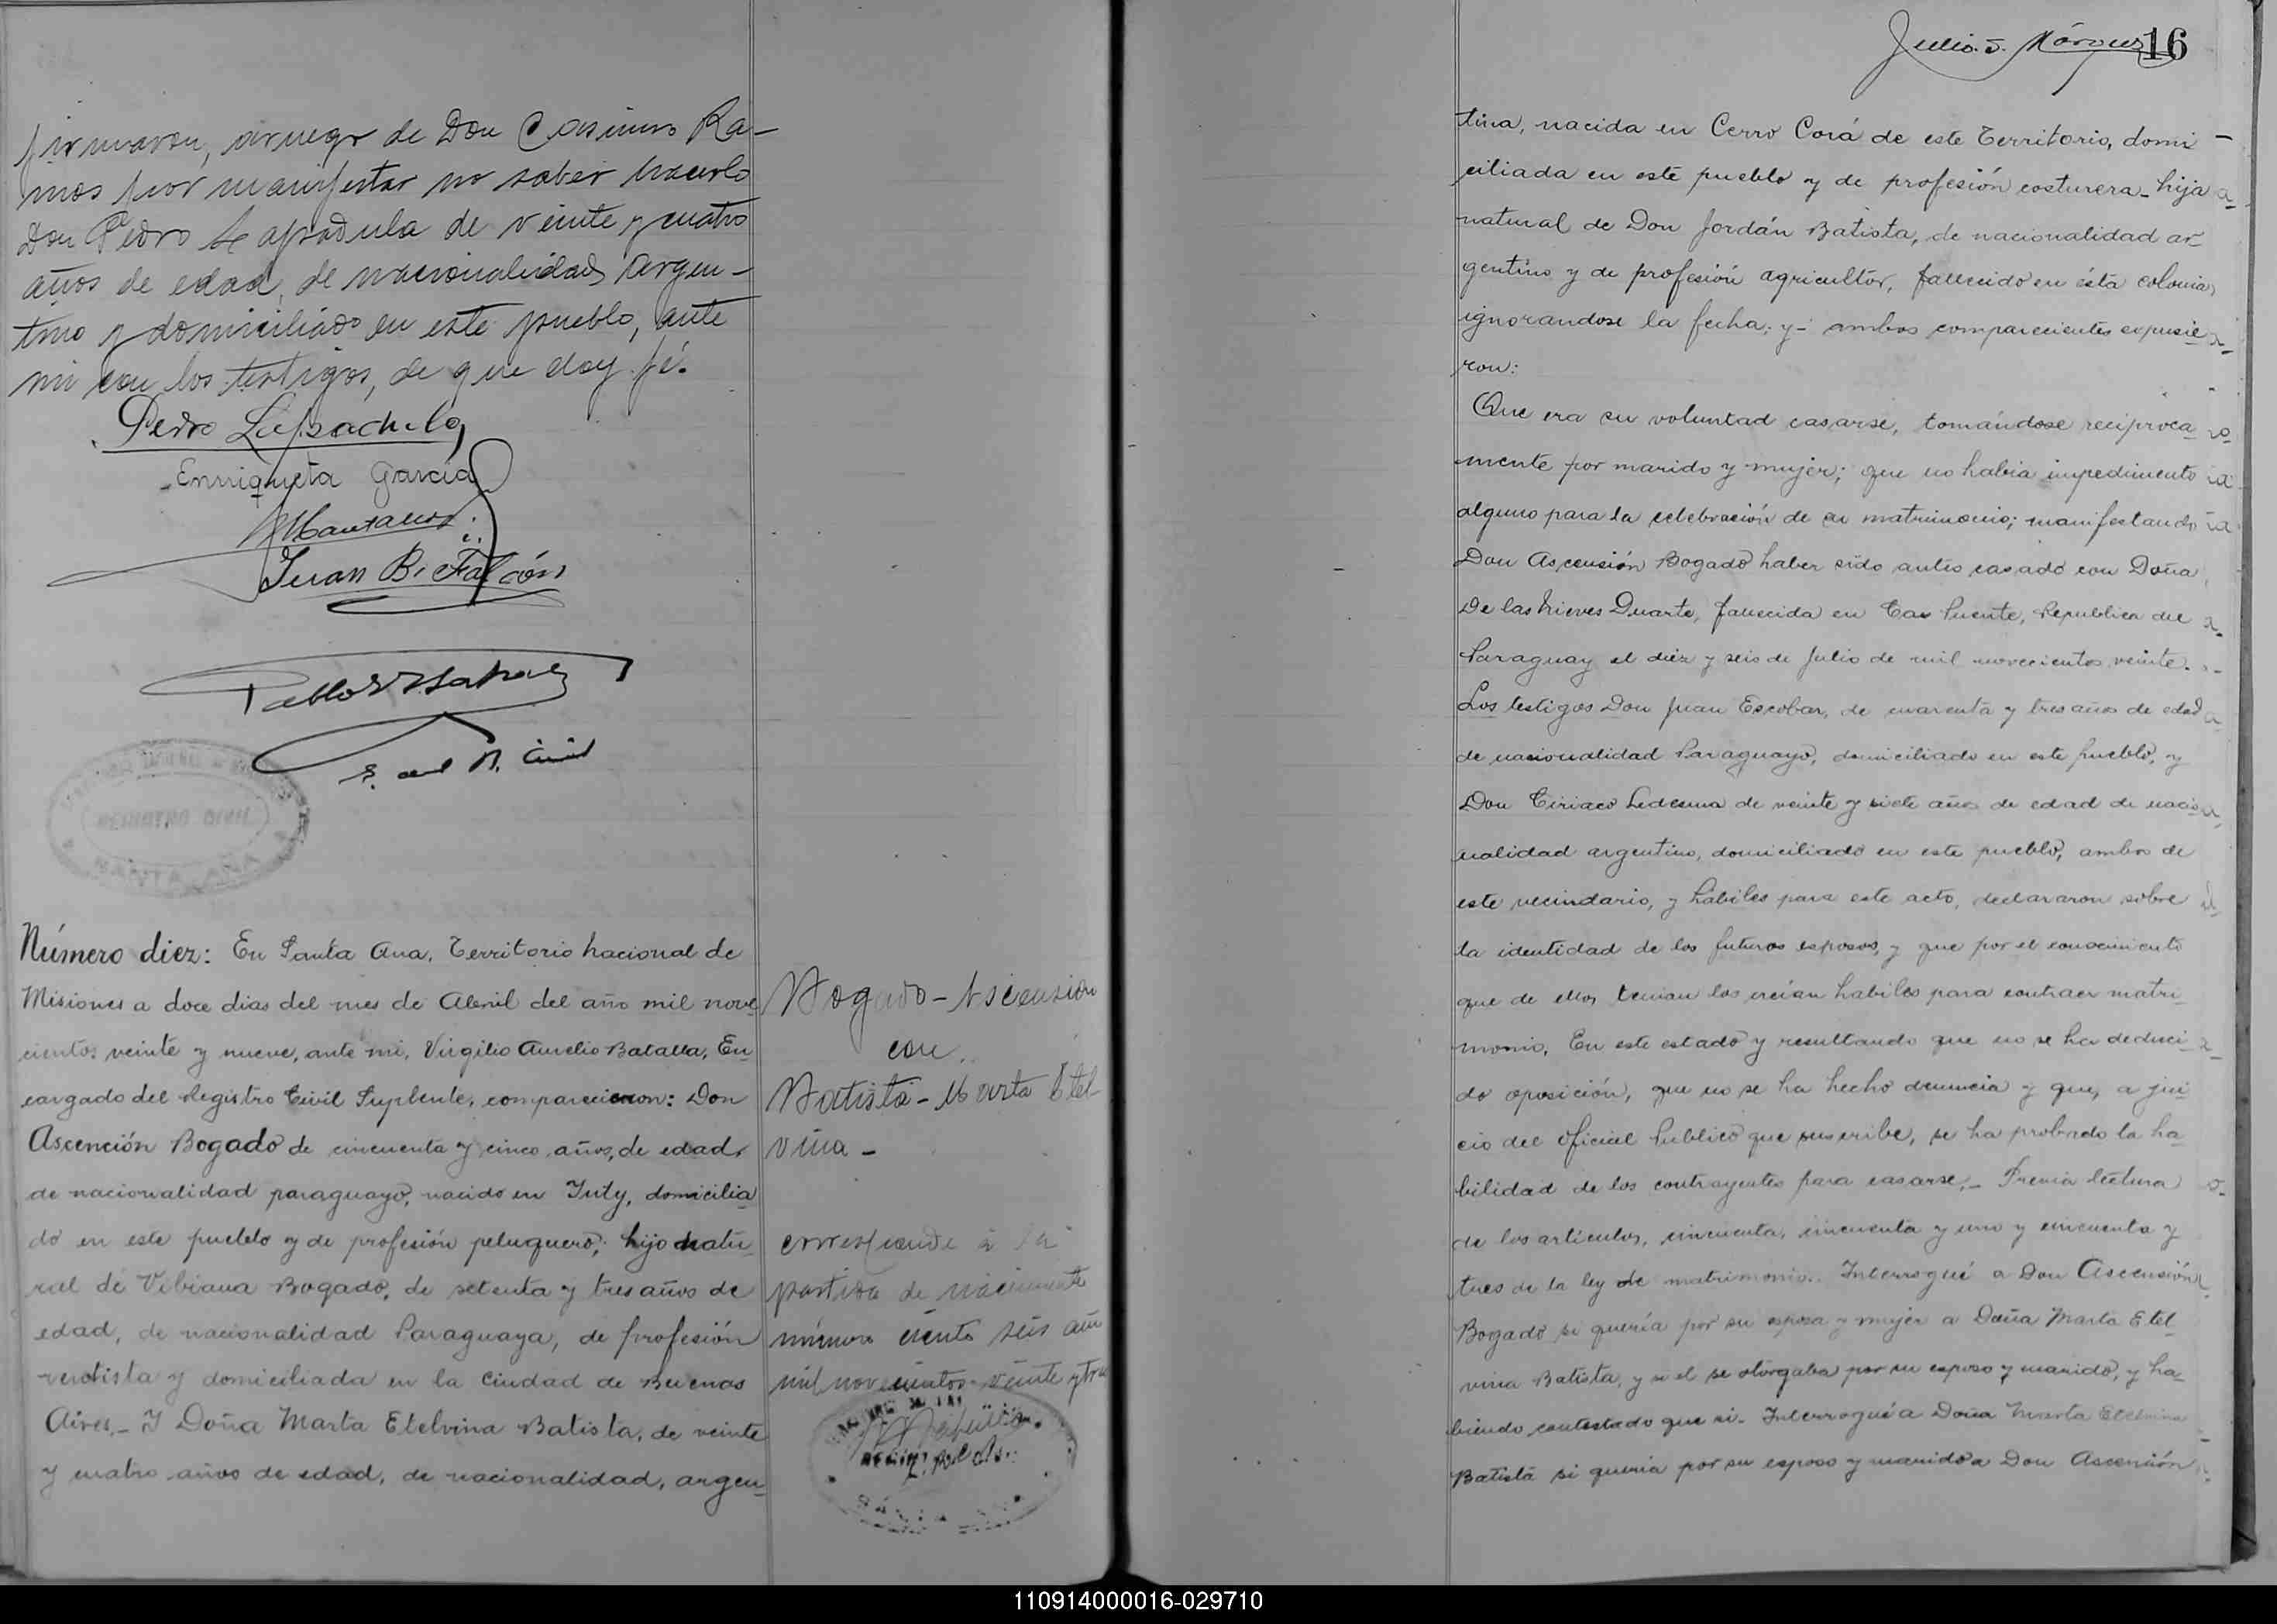 firmaron, a ruego de Don Casimiro Ra-
mos por manifestar no saber hacerlo
Don Pedro Lapadula de veinte y cuatro
años de edad, de nacionalidad Argen-
tino y domiciliado en este pueblo, ante
mi con los testigos, de que doy fé.
Pedro Lapadula
Enriqueta Garcia
Juan B. Falcón
E. del R. Civil
REGISTRO CIVIL
SANTA ANA
Número diez: En Santa Ana, Territorio Nacional de
Misiones a doce dias del mes de Abril del año mil nove
cientos veinte y nueve, ante mi, Virgilio Aurelio Batalla, En
cargado del Registro Civil Suplente, comparecieron: Don
Ascención Bogado de cincuenta y cinco años, de edad,
de nacionalidad paraguayo, nacido en Yuty, domicilia
do en este pueblo y de profesión peluquero; hijo natu-
ral de Vibiana Bogado, de setenta y tres años de
edad, de nacionalidad Paraguaya, de profesión
y domiciliada en la Ciudad de Buenos
Aires.- Y Doña Marta Etelvina Batista, de veinte
y cuatro años de edad, de nacionalidad, argen-
Bogado - Ascension
con
Batista - Marta Etel-
vina -
corresponde á la
partida de nacimiento
número ciento seis año
mil novecientos veinte y tres
16
tina, nacida en Cerro Corá de este Territorio, domi
ciliada en este pueblo y de profesión costurera - hija
natural de Don Jordán Batista, de nacionalidad ar-
gentino y de profesión agricultor, fallecido en ésta colonia,
ignorandose la fecha; y- ambos comparecientes expusie
ron:
Que era su voluntad casarse, tomándose reciproca
mente por marido y mujer; que no habia impedimento
alguno para la celebración de su matrimonio; manifestando
Don Ascensión Bogado haber sido antes casado con Doña
De las Nieves Duarte, fallecida en Puente, Republica del
Paraguay el diez y seis de Julio de mil novecientos veinte.-
Los testigos Don Juan Escobar, de cuarenta y tres años de edad
de nacionalidad Paraguayo, domiciliado en este pueblo, y
Don Ciriaco Ledesma de veinte y siete años de edad de nacio
nalidad argentino, domiciliado en este pueblo, ambos de
este vecindario, y hábiles para este acto, declararon sobre
la identidad de los futuros esposos, y que por el conocimiento
que de ellos tenian los creian habiles para contraer matri-
monio. En este estado y resultando que no se ha deduci
do oposición, que no se ha hecho denuncia y que, a jui
cio del Oficial Publico que suscribe, se ha probado la ha-
bilidad de los contrayentes para casarse.- Previa lectura
de los artículos, cincuenta, cincuenta y uno y cincuenta y
tres de la ley de matrimonio.. Interrogué a Don Ascensión
Bogado si quería por su esposa y mujer a Doña Marta Etel-
vina Batista, y si el se otorgaba por su esposo y marido, y ha-
biendo contestado que si- Interrogué a Doña Marta Etelvina
Batista si queria por su esposo y marido a Don Ascensión
110914000016-029710